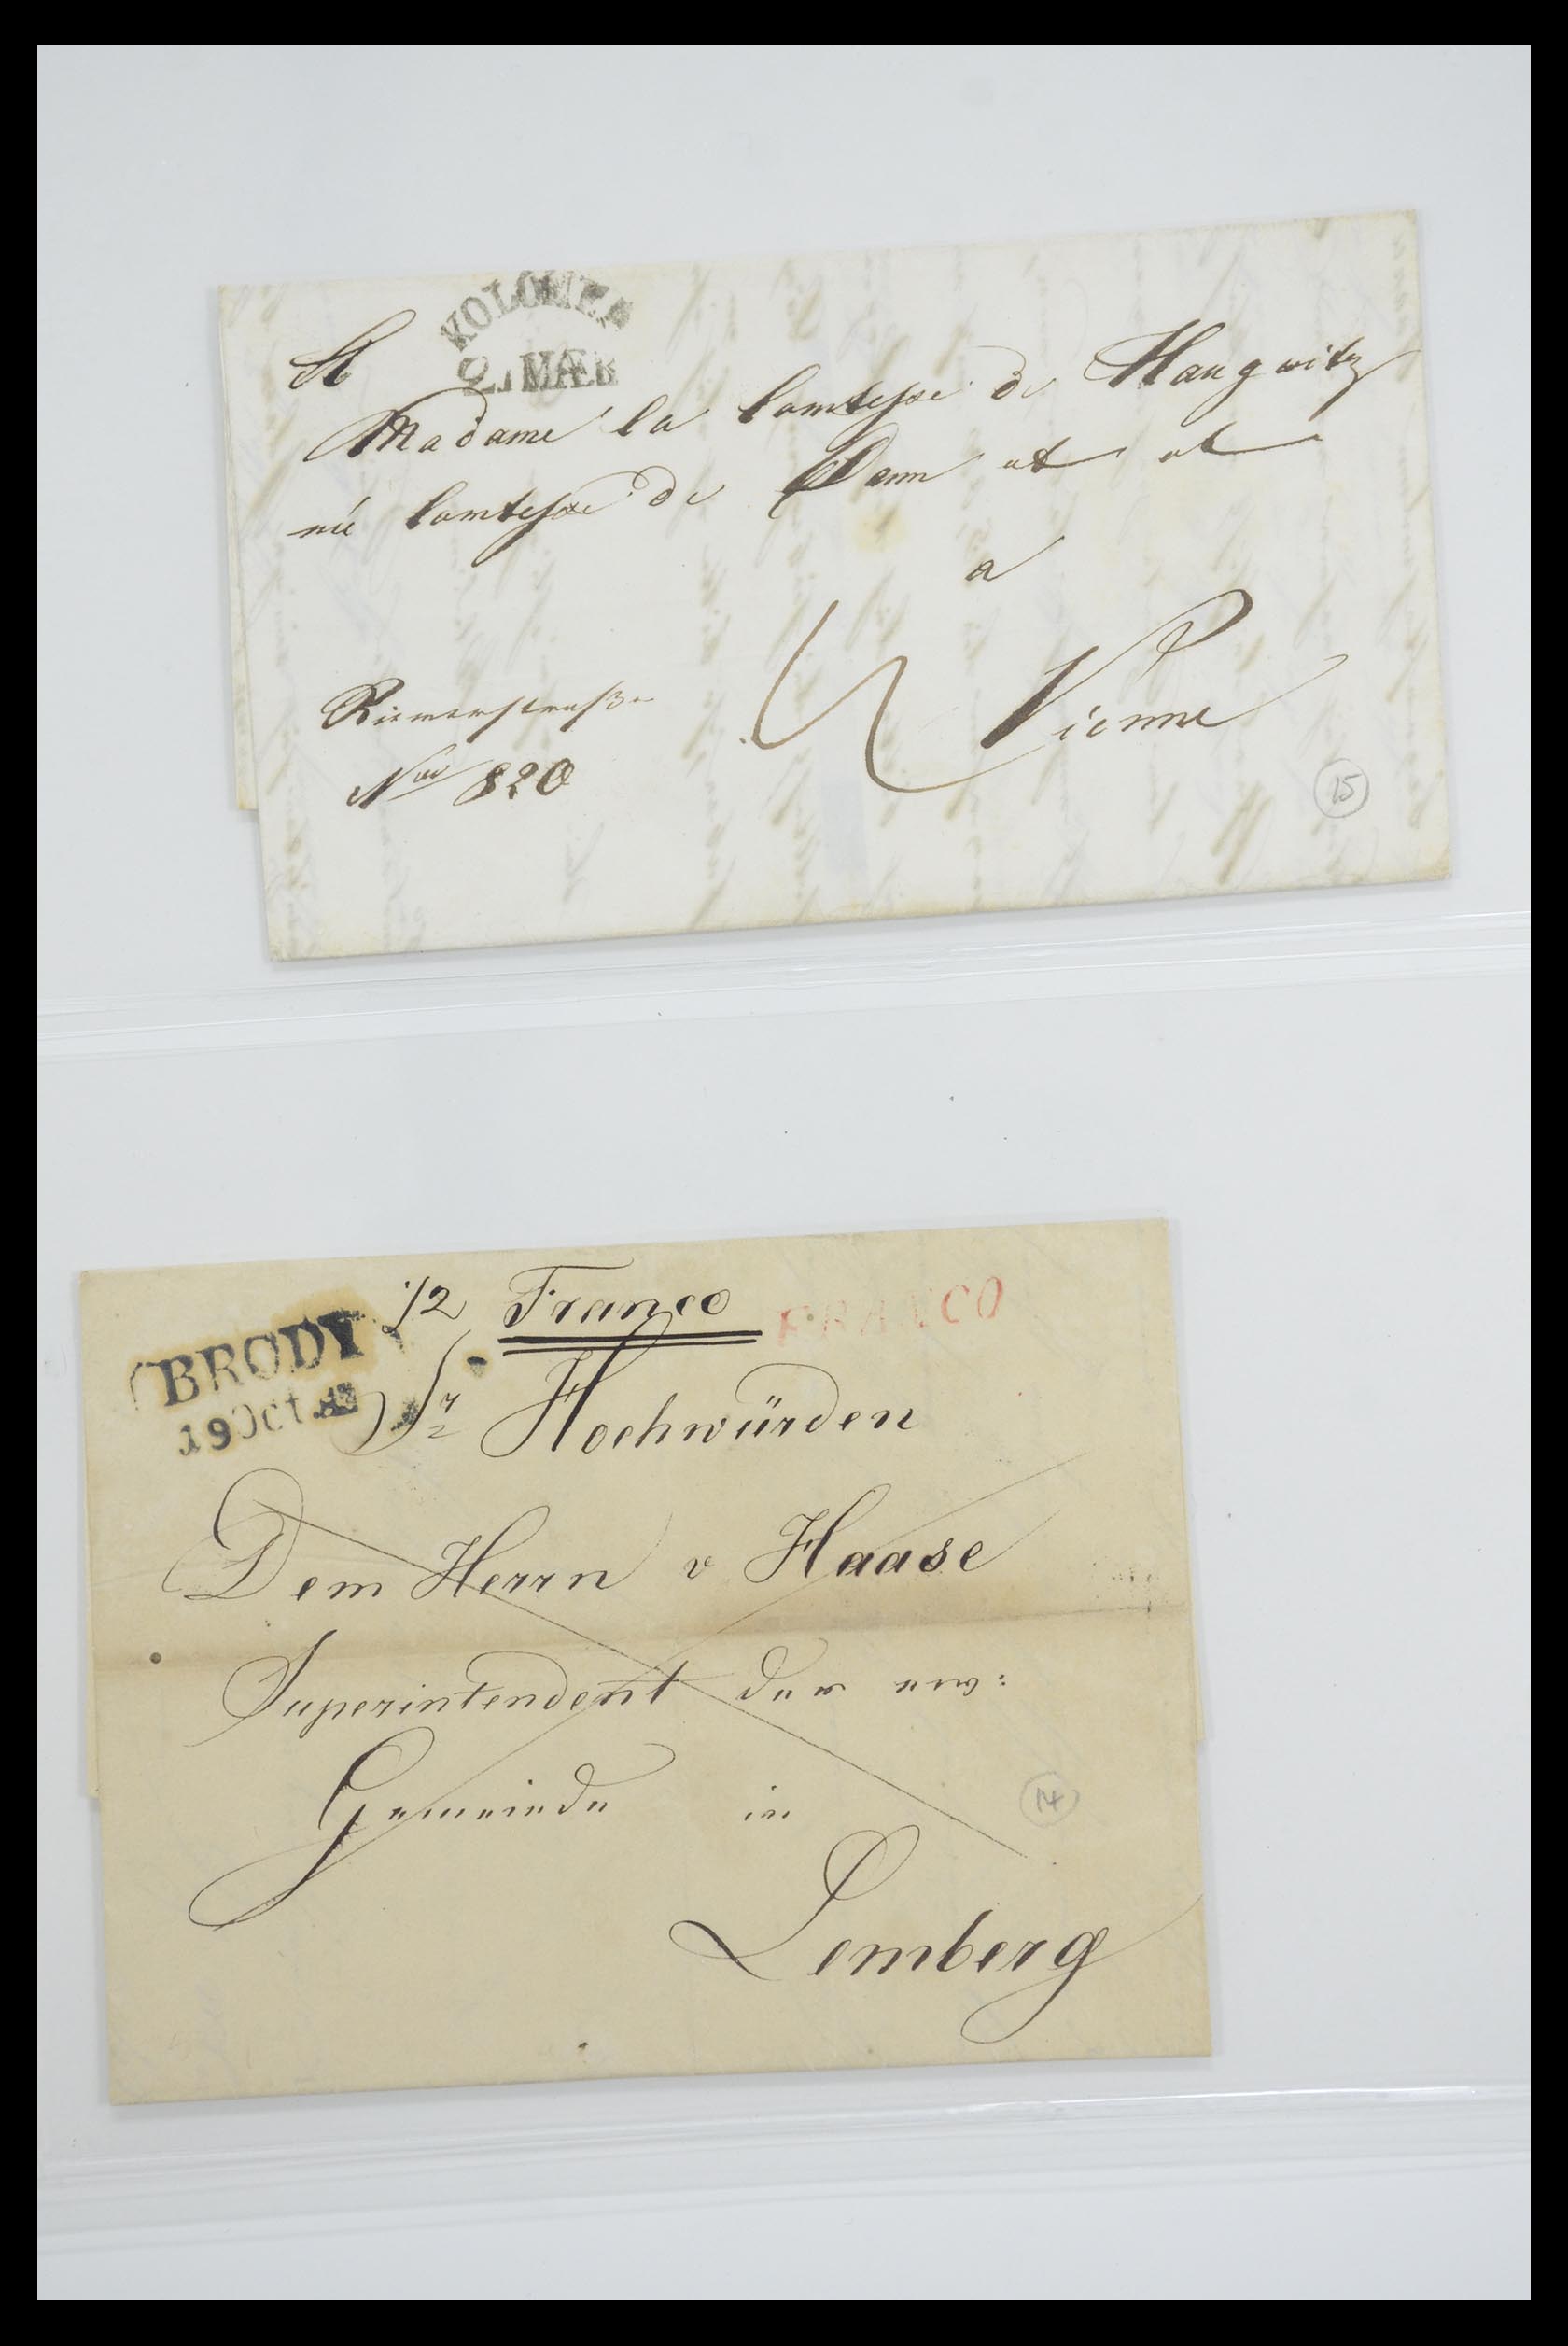 KOLOMEA
2. MÆR
A
Madame la Comtesse de Haugwitz
née Comtesse de et et
a
Vienne
Riemerstraße
Nro 820
15
1/2 Franco
FRANCO
BRODY
19 Oct
Sr Hochwürden
Dem Herrn v Haase
Superintendent der ew:
Gemeinde in
14
Lemberg